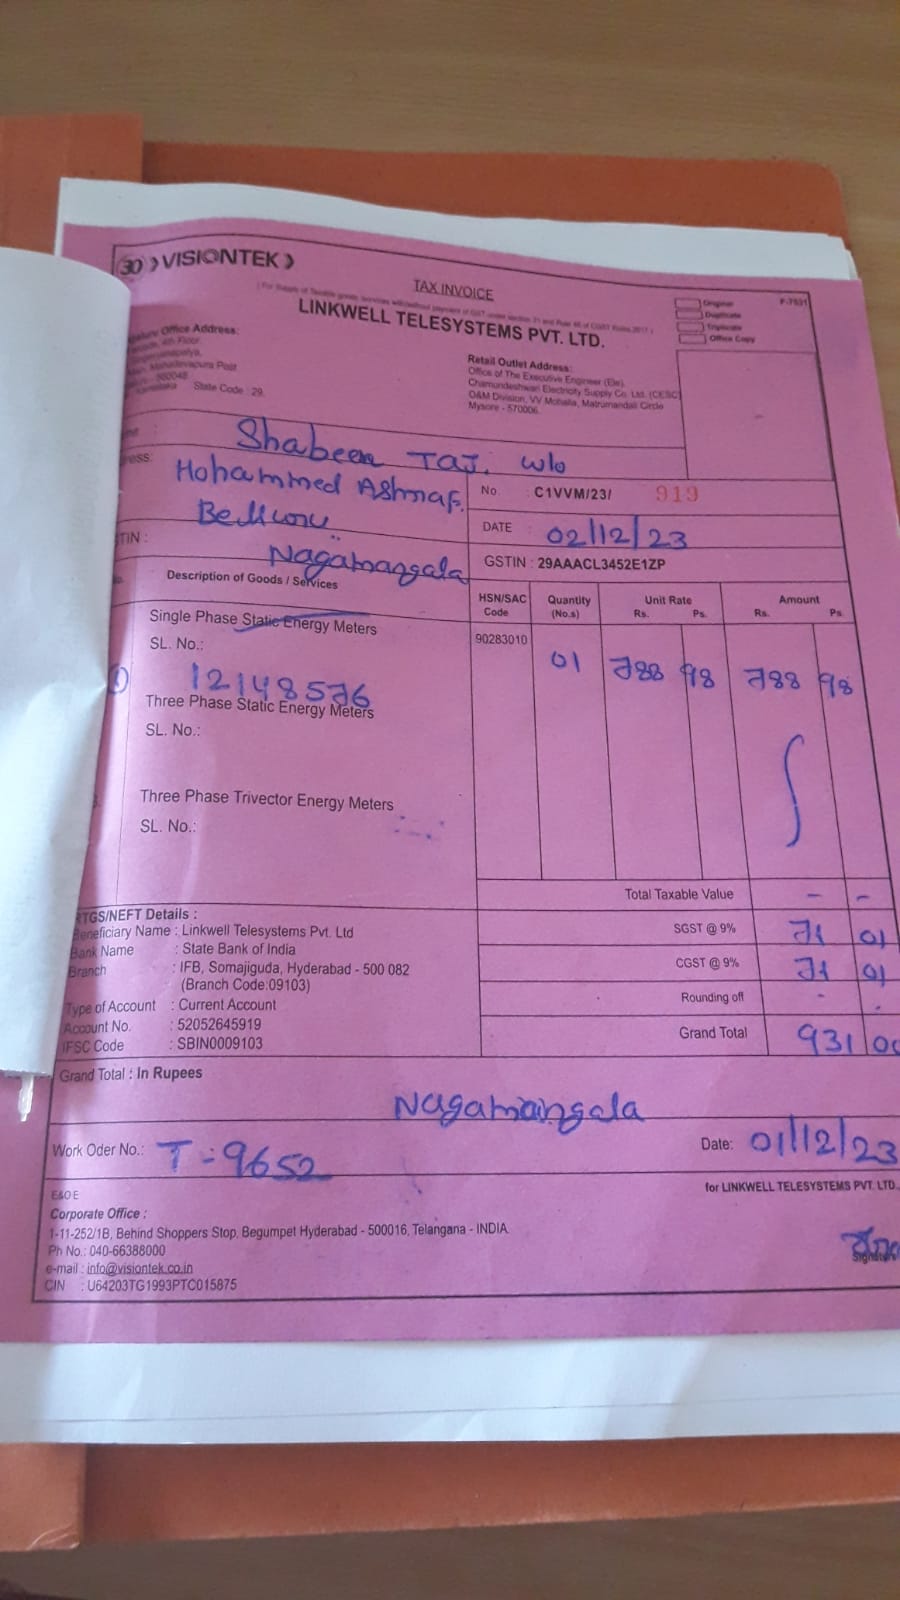 30 VISIONTEK
TAX INVOICE
LINKWELL TELESYSTEMS PVT. LTD.
Original
Duplicate
Triplicate
Office Copy
Office Address:
4th Floor
Mahadevapura Post
560048
State Code : 29
Retail Outlet Address:
Office of The Executive Engineer (Ele).
Chamundeshwari Electricity Supply Co. Ltd. (CESC)
O&M Division, VV Mohalla, Matrumandali Circle
Mysore - 570006.
Shabeen Taj. w/o
Mohammed Ashraf.
No. : C1VVM/23/ 919
DATE : 02/12/23
Nagamangala
GSTIN : 29AAACL3452E1ZP
Description of Goods / Services
HSN/SAC Code
Quantity (No.s)
Unit Rate Rs. Ps.
Amount Rs. Ps.
Single Phase Static Energy Meters
SL. No.:
90283010 01 788 98 788 98
12148576
Three Phase Static Energy Meters
SL. No.:
Three Phase Trivector Energy Meters
SL. No.:
Total Taxable Value - -
SGST @ 9% 71 01
CGST @ 9% 71 01
Rounding off - -
Grand Total 931 00
RTGS/NEFT Details :
Beneficiary Name : Linkwell Telesystems Pvt. Ltd
Bank Name : State Bank of India
Branch : IFB, Somajiguda, Hyderabad - 500 082
(Branch Code:09103)
Type of Account : Current Account
Account No. : 52052645919
IFSC Code : SBIN0009103
Grand Total : In Rupees
Nagamangala
Work Oder No.: T-9652
Date: 01/12/23
E&OE
for LINKWELL TELESYSTEMS PVT. LTD.
Corporate Office :
1-11-252/1B, Behind Shoppers Stop, Begumpet Hyderabad - 500016, Telangana - INDIA
Ph No.: 040-66388000
e-mail : info@visiontek.co.in
CIN : U64203TG1993PTC015875
Signature